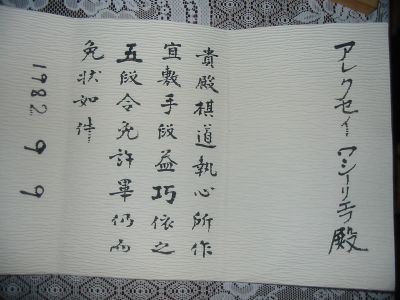 アレクセイ ワシーリエフ殿
貴殿棋道執心所作
宜敷手段益巧依之
五段令免許畢仍而
免状如件
1982. 9 9